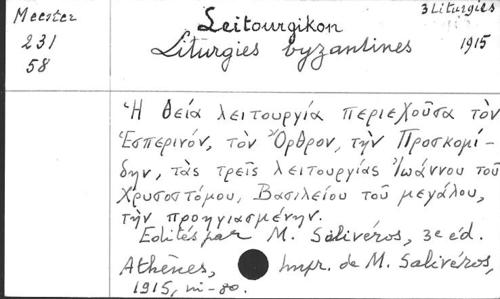 Meester
231
58
Leitourgikon
3 Liturgies
Liturgies byzantines
1915
Ἡ θεία λειτουργία περιεχοῦσα τὸν
Ἑσπερινόν, τὸν Ὄρθρον, τὴν Προσκομί-
δην, τὰς τρεῖς λειτουργίας Ἰωάννου τοῦ
Χρυσοστόμου, Βασιλείου τοῦ μεγάλου,
τὴν προηγιασμένην.
Edités par M. Salivéros, 3e éd.
Athènes, Impr. de M. Saliveros,
1915, in-80.